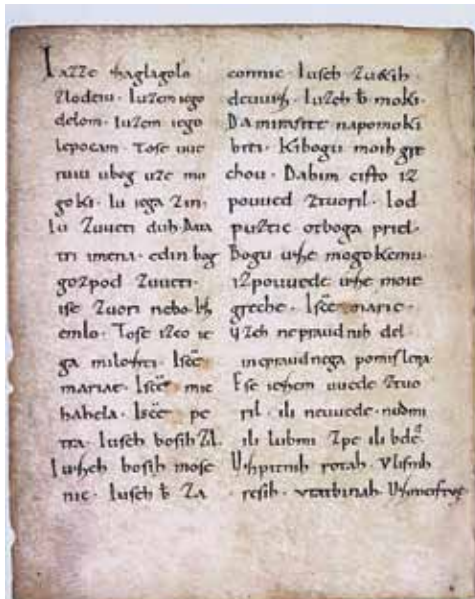 Iazze zaglagolo
zlodeiu. Iuzem iego
delom. Iuzem iego
lepocam. Tose uue
ruiu ubog uze mo
goki. Iu iega zin.
Iu zuueti duh. Data
tri imena. edin bog
gozpod zuueti.
ise zuori nebo. Isz
emlo. Tose izco ie
ga milosti. Isc̄e
mariae. Isc̄e mic
hahela. Isc̄e pe
tra. Iuseh bosih zl.
Iuzeh bosih mose
nic. Iuseh b̄ za
connic. Iuseh zuetih
deuuiz. Iuzeh b̄ moki.
Da mi raste napomoki
biti. Kibogu moih gre
chou. Dabim cisto iz
pouued ztuoril. Iod
puztic otboga priel.
Bogu uze mogokemu
izpouuede uze moie
greche. Isc̄e marie.
uzeh nepraudnih del.
inepraudnega pomislena.
Ese iezem uuede ztuo
ril. ili neuuede. nudmi
ili lubmi zpe ili bde.
Uzpitnih rotah. Vlisnih
resih. vtatbinah.